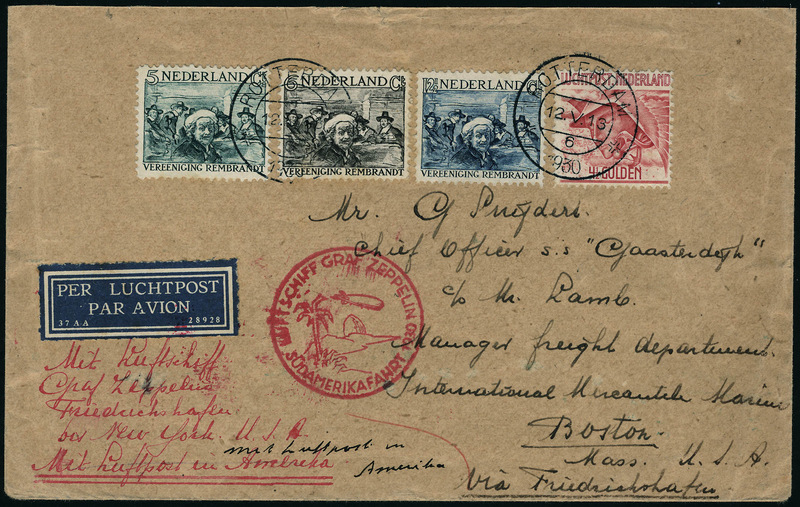 5 NEDERLAND Ct
VEREENIGING REMBRANDT
6 NEDERLAND Ct
VEREENIGING REMBRANDT
12½ NEDERLAND Ct
VEREENIGING REMBRANDT
LUCHTPOST NEDERLAND
4½ GULDEN
ROTTERDAM
12
ROTTERDAM
12.V.13
6
1930
Mr. G Snijders.
Chief Officer s.s "Gaasterdyk"
c/o Mr. Lamb.
Manager freight department.
International Mercantile Marine
Boston.
Mass. U.S.A.
via Friedrichshafen.
PER LUCHTPOST
PAR AVION
37AA 28928
LUFTSCHIFF GRAF ZEPPELIN
SÜDAMERIKAFAHRT 1930
Mit Luftschiff
Graf Zeppelin
Friedrichshafen
bis New York. U.S.A.
Mit Luftpost in Amerika
mit Luftpost in
Amerika